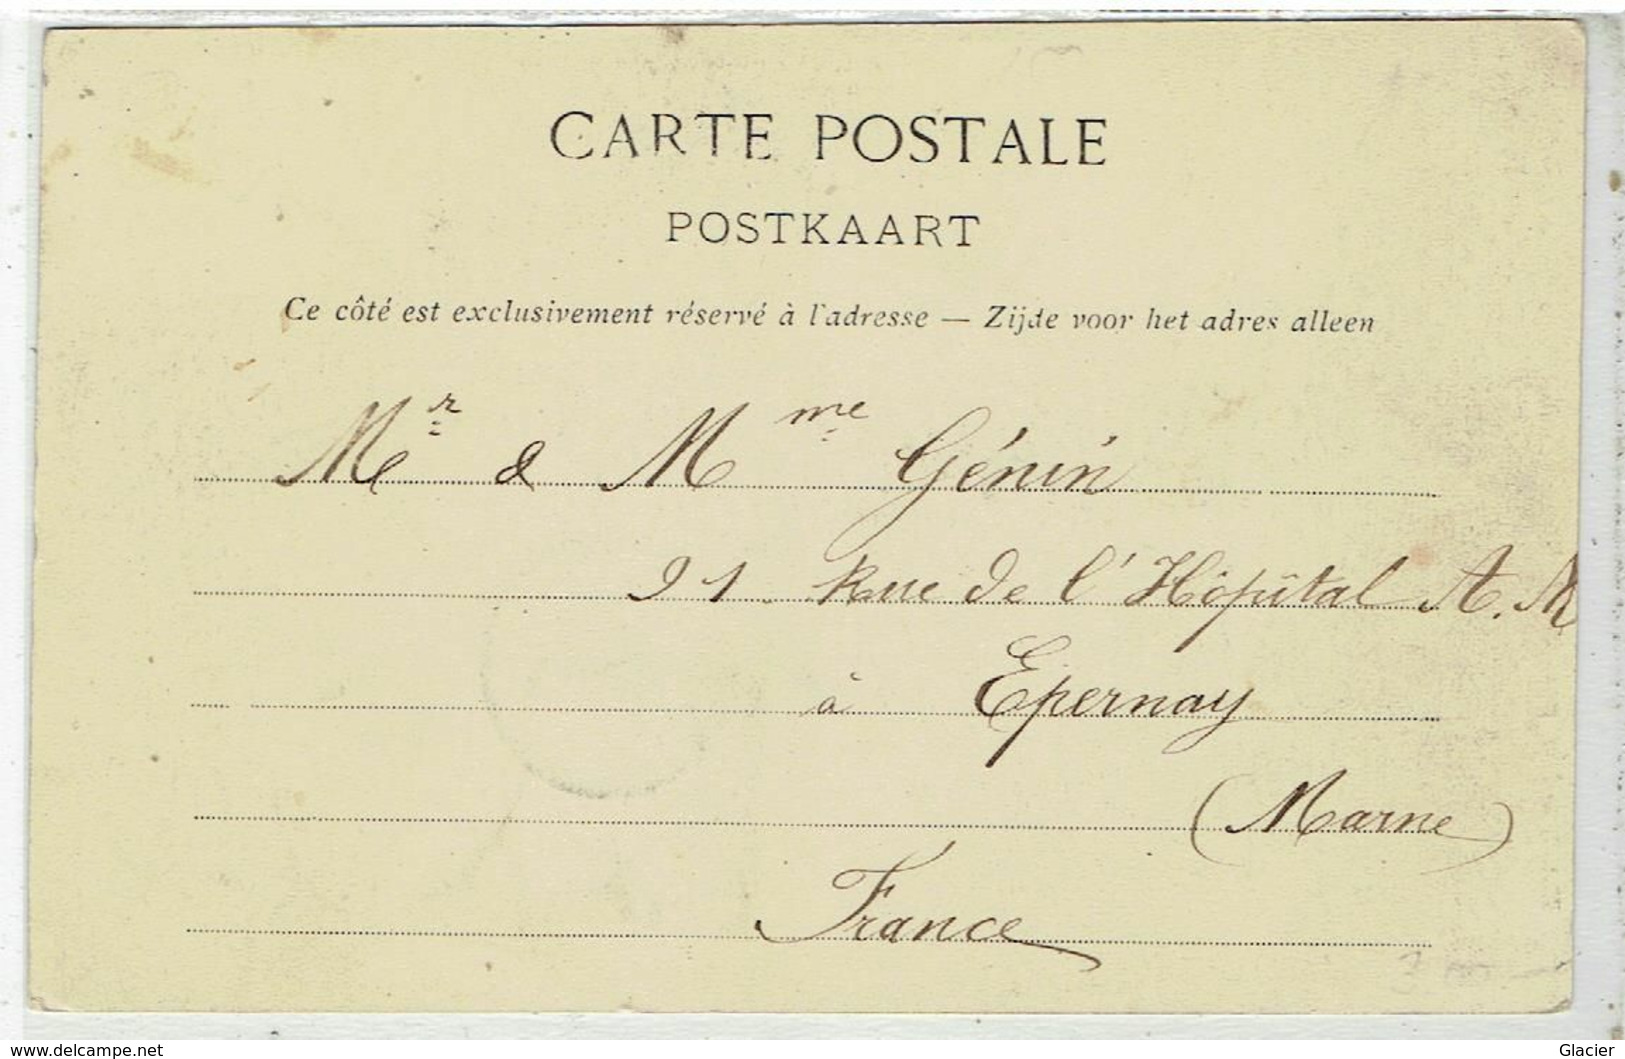 CARTE POSTALE
POSTKAART
Ce côté est exclusivement réservé à l'adresse — Zijde voor het adres alleen
Mr & Mme Génin
21 Rue de l'Hôpital A. M
à Epernay
(Marne)
France
www.delcampe.net
Glacier